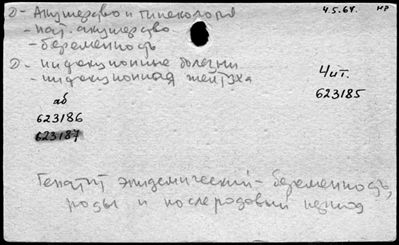 2) - Акушерство и гинекология
4.5.64. нр
- пат. акушерство
- беременность
2) - инфекционные болезни
- инфекционная желтуха
4 чт.
623185
аб
623186
623187
Гепатит эпидемический - беременность,
роды и послеродовый период